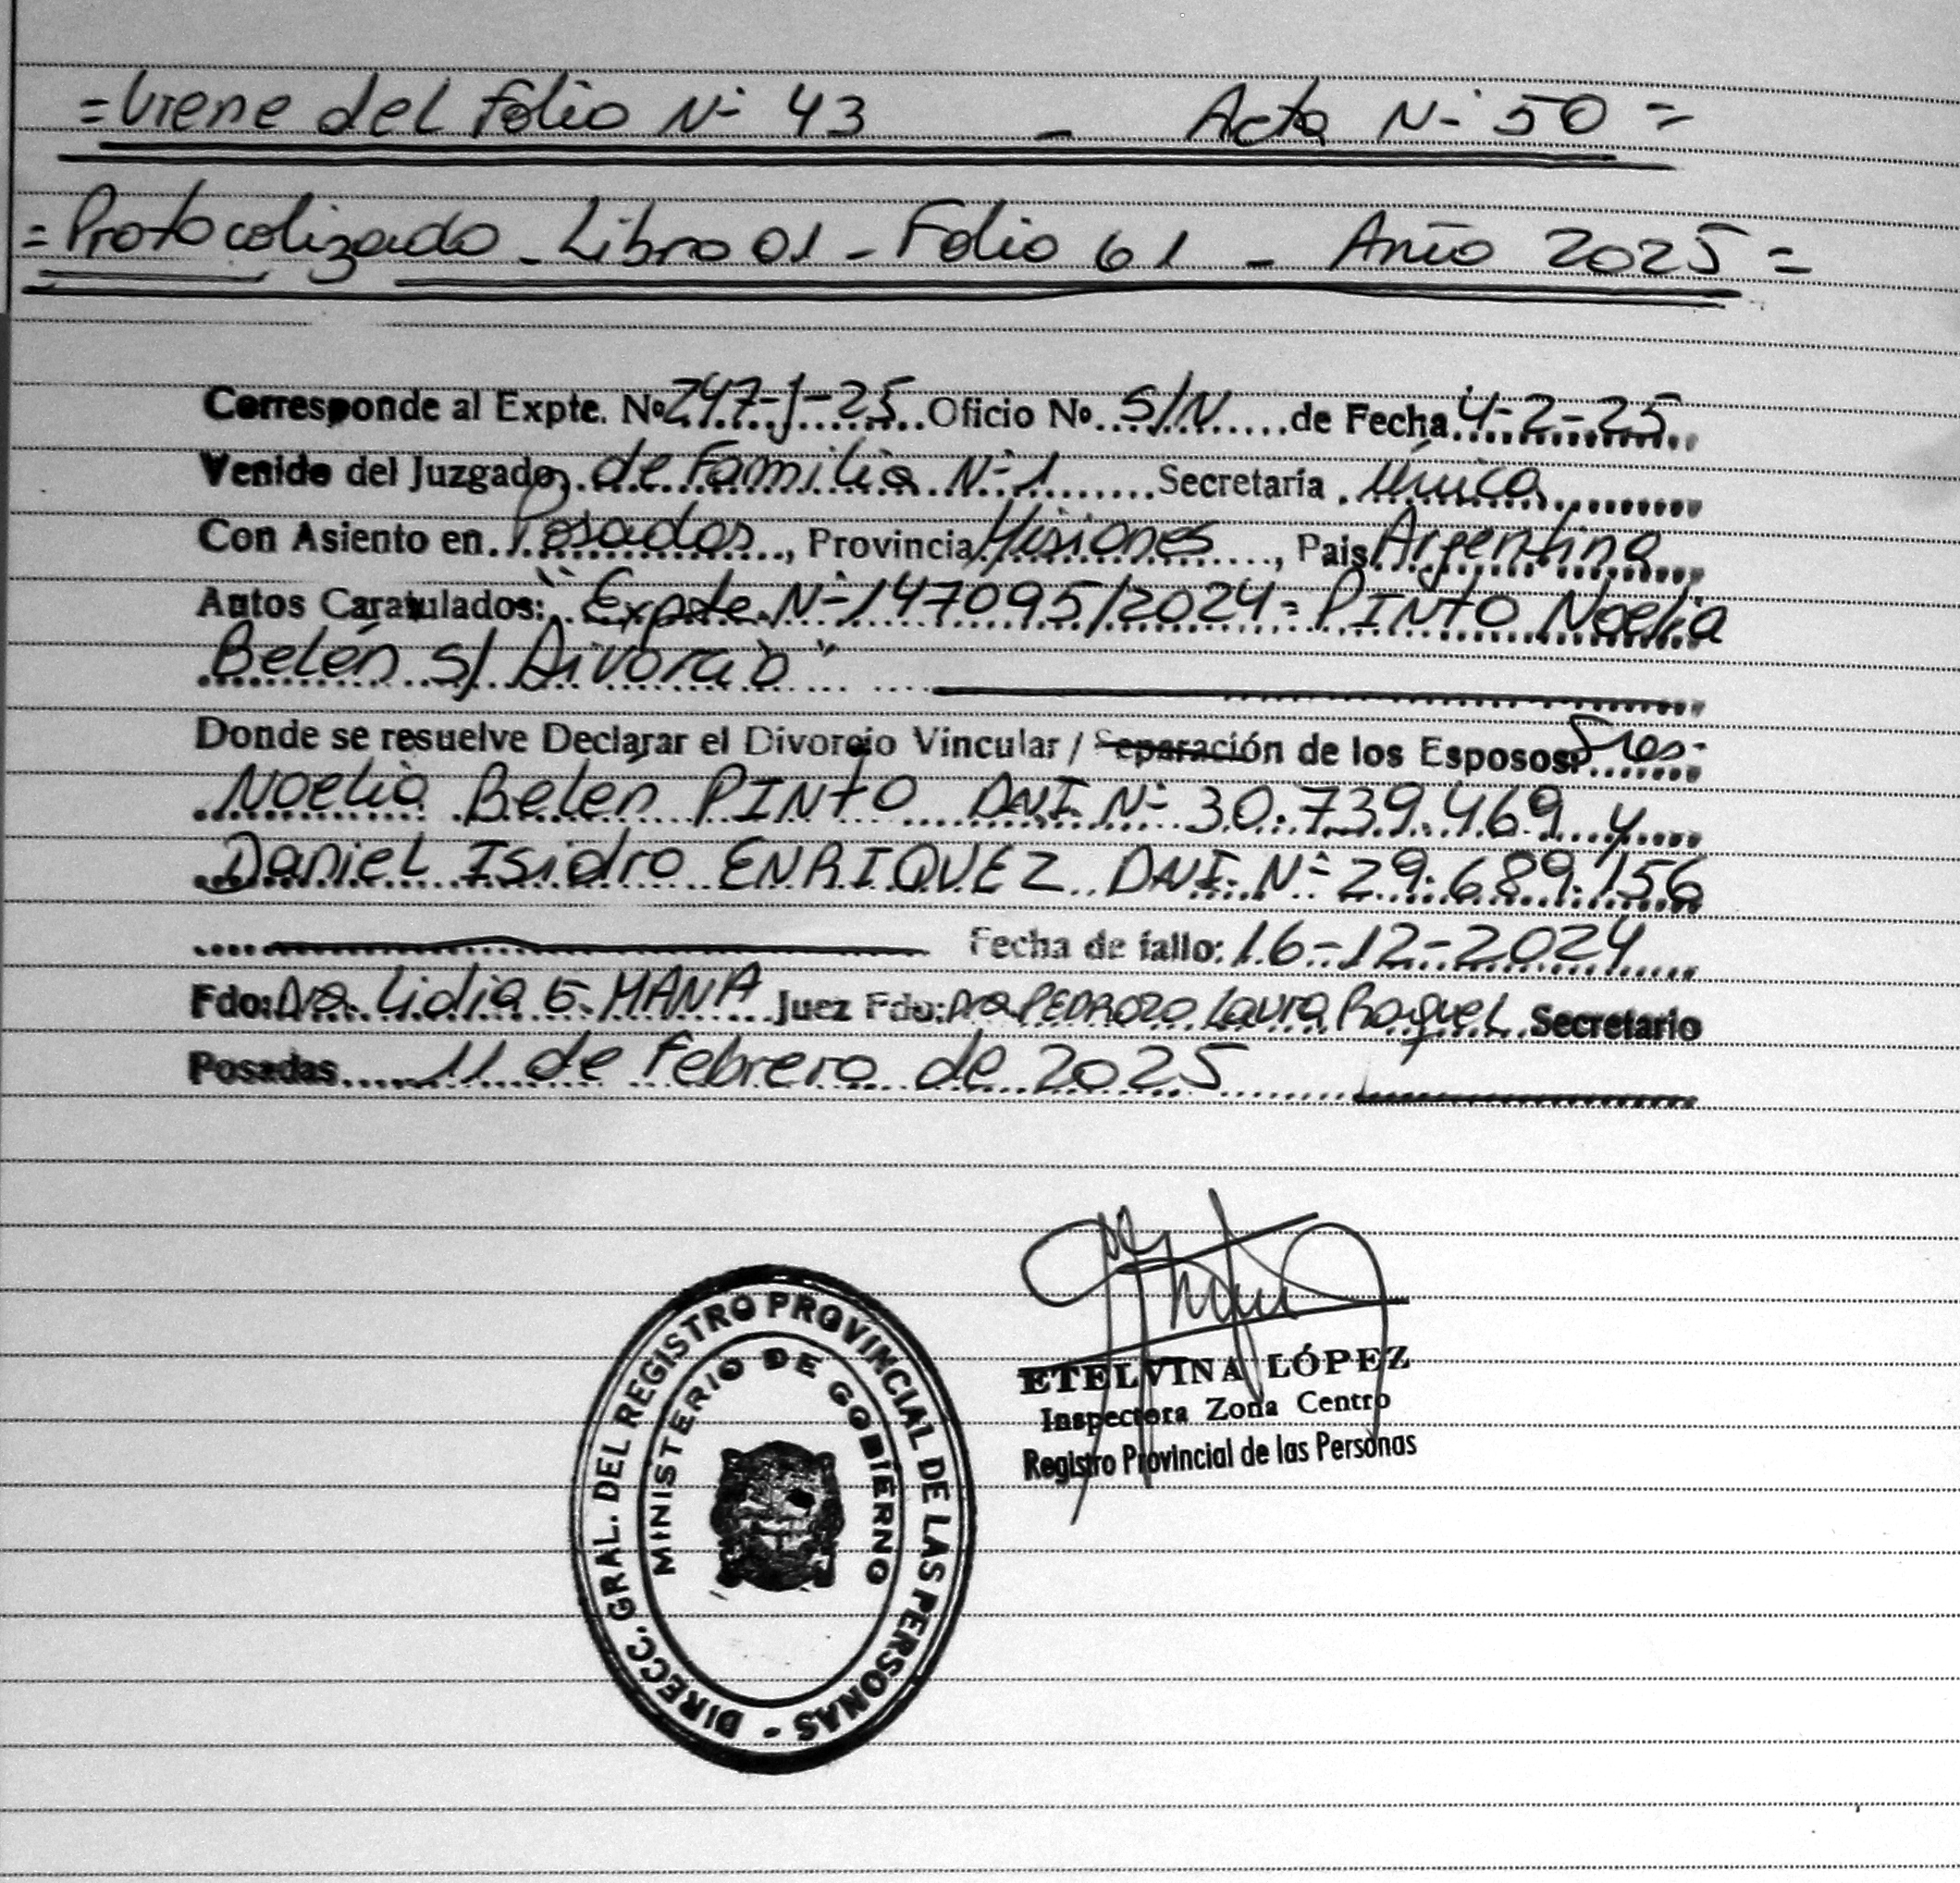 =Viene del folio N- 43 - Acta N- 50=
=Protocolizado - Libro 01 - Folio 61 - Año 2025=
Corresponde al Expte. Nº 247-J-25 Oficio Nº S/N de Fecha 4-2-25
Venido del Juzgado, de Familia N-1 Secretaria Única
Con Asiento en Posadas, Provincia Misiones, Pais Argentina
Autos Caratulados: "Expte. N-147095/2024= PINTO Noelia
Belén s/ Divorcio"
Donde se resuelve Declarar el Divorcio Vincular / Separación de los Esposos: Sres.
Noelia Belén PINTO DNI. N- 30.739.469 y
Daniel Isidro ENRIQUEZ DNI. N- 29.689.156
Fecha de fallo: 16-12-2024
Fdo: Dra. Lidia E. MANA Juez Fdo: Dra PEDROZO Laura Raquel Secretario
Posadas 11 de febrero de 2025
DIRECC. GRAL. DEL REGISTRO PROVINCIAL DE LAS PERSONAS -
MINISTERIO DE GOBIERNO
ETELVINA LÓPEZ
Inspectora Zona Centro
Registro Provincial de las Personas